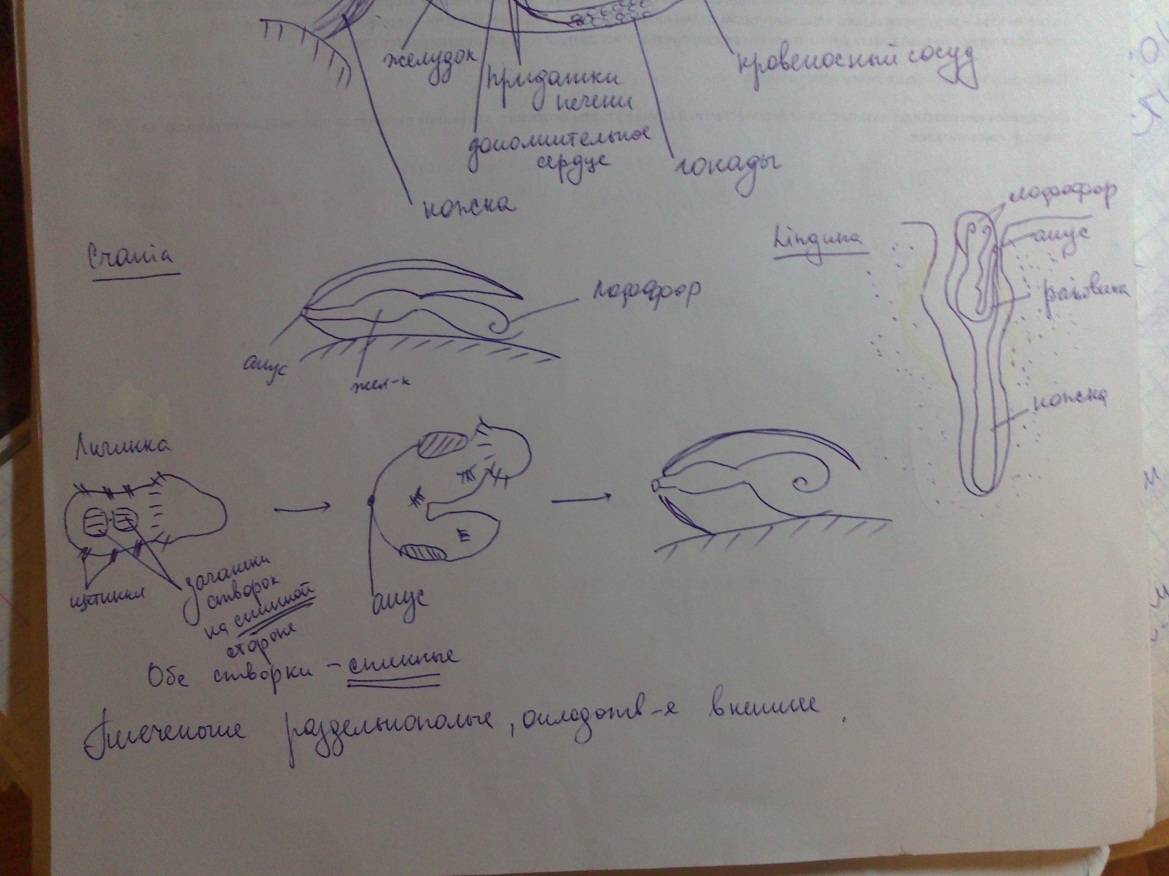 желудок
придатки
печени
кровеносный сосуд
дополнительное
сердце
гонады
ножка
Crania
лофофор
анус
жел-к
Lingula
лофофор
анус
раковина
ножка
Личинка
щетинки
зачатки
створок
на спинной
стороне
анус
Обе створки – спинные
Плеченогие раздельнополые, оплодотв-е внешнее.